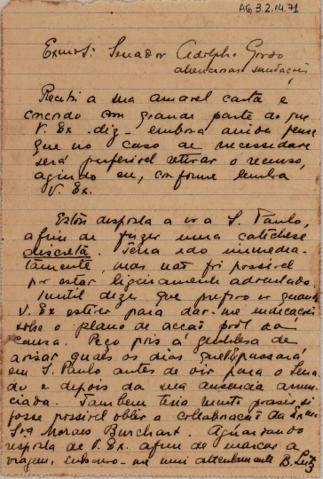 AG 3.2.14.71
Exmo Sr. Senador Adolpho Gordo
attenciosas saudações
Recebi a sua amavel carta e
concordo com grande parte do que
V. Ex. diz - embora ainda pense
que no caso de necessidade
será preferivel retirar o recurso,
agindo eu, conforme lembra
V. Ex.
Estou disposta a ir a S. Paulo,
afim de fazer uma catechese
discreta. Teria ido immedia-
tamente, mas não foi possivel
por estar ligeiramente adoentada.
Inutil dizer que prefiro ir quando
V. Ex estiver para dar-me indicações
sobre o plano de acção pról da
causa. Peço pois a gentileza de
avisar quaes os dias que passará
em S. Paulo antes de vir para o Sena
do e depois da sua ausencia annun-
ciada. Tambem terio muito prazer si
fosse possivel obter a collaboração da
Sra Moraes Burchart. Aguardando
resposta de V. Ex. afim de marcar a
viagem, subscrevo-me mui attentamente B. Lutz